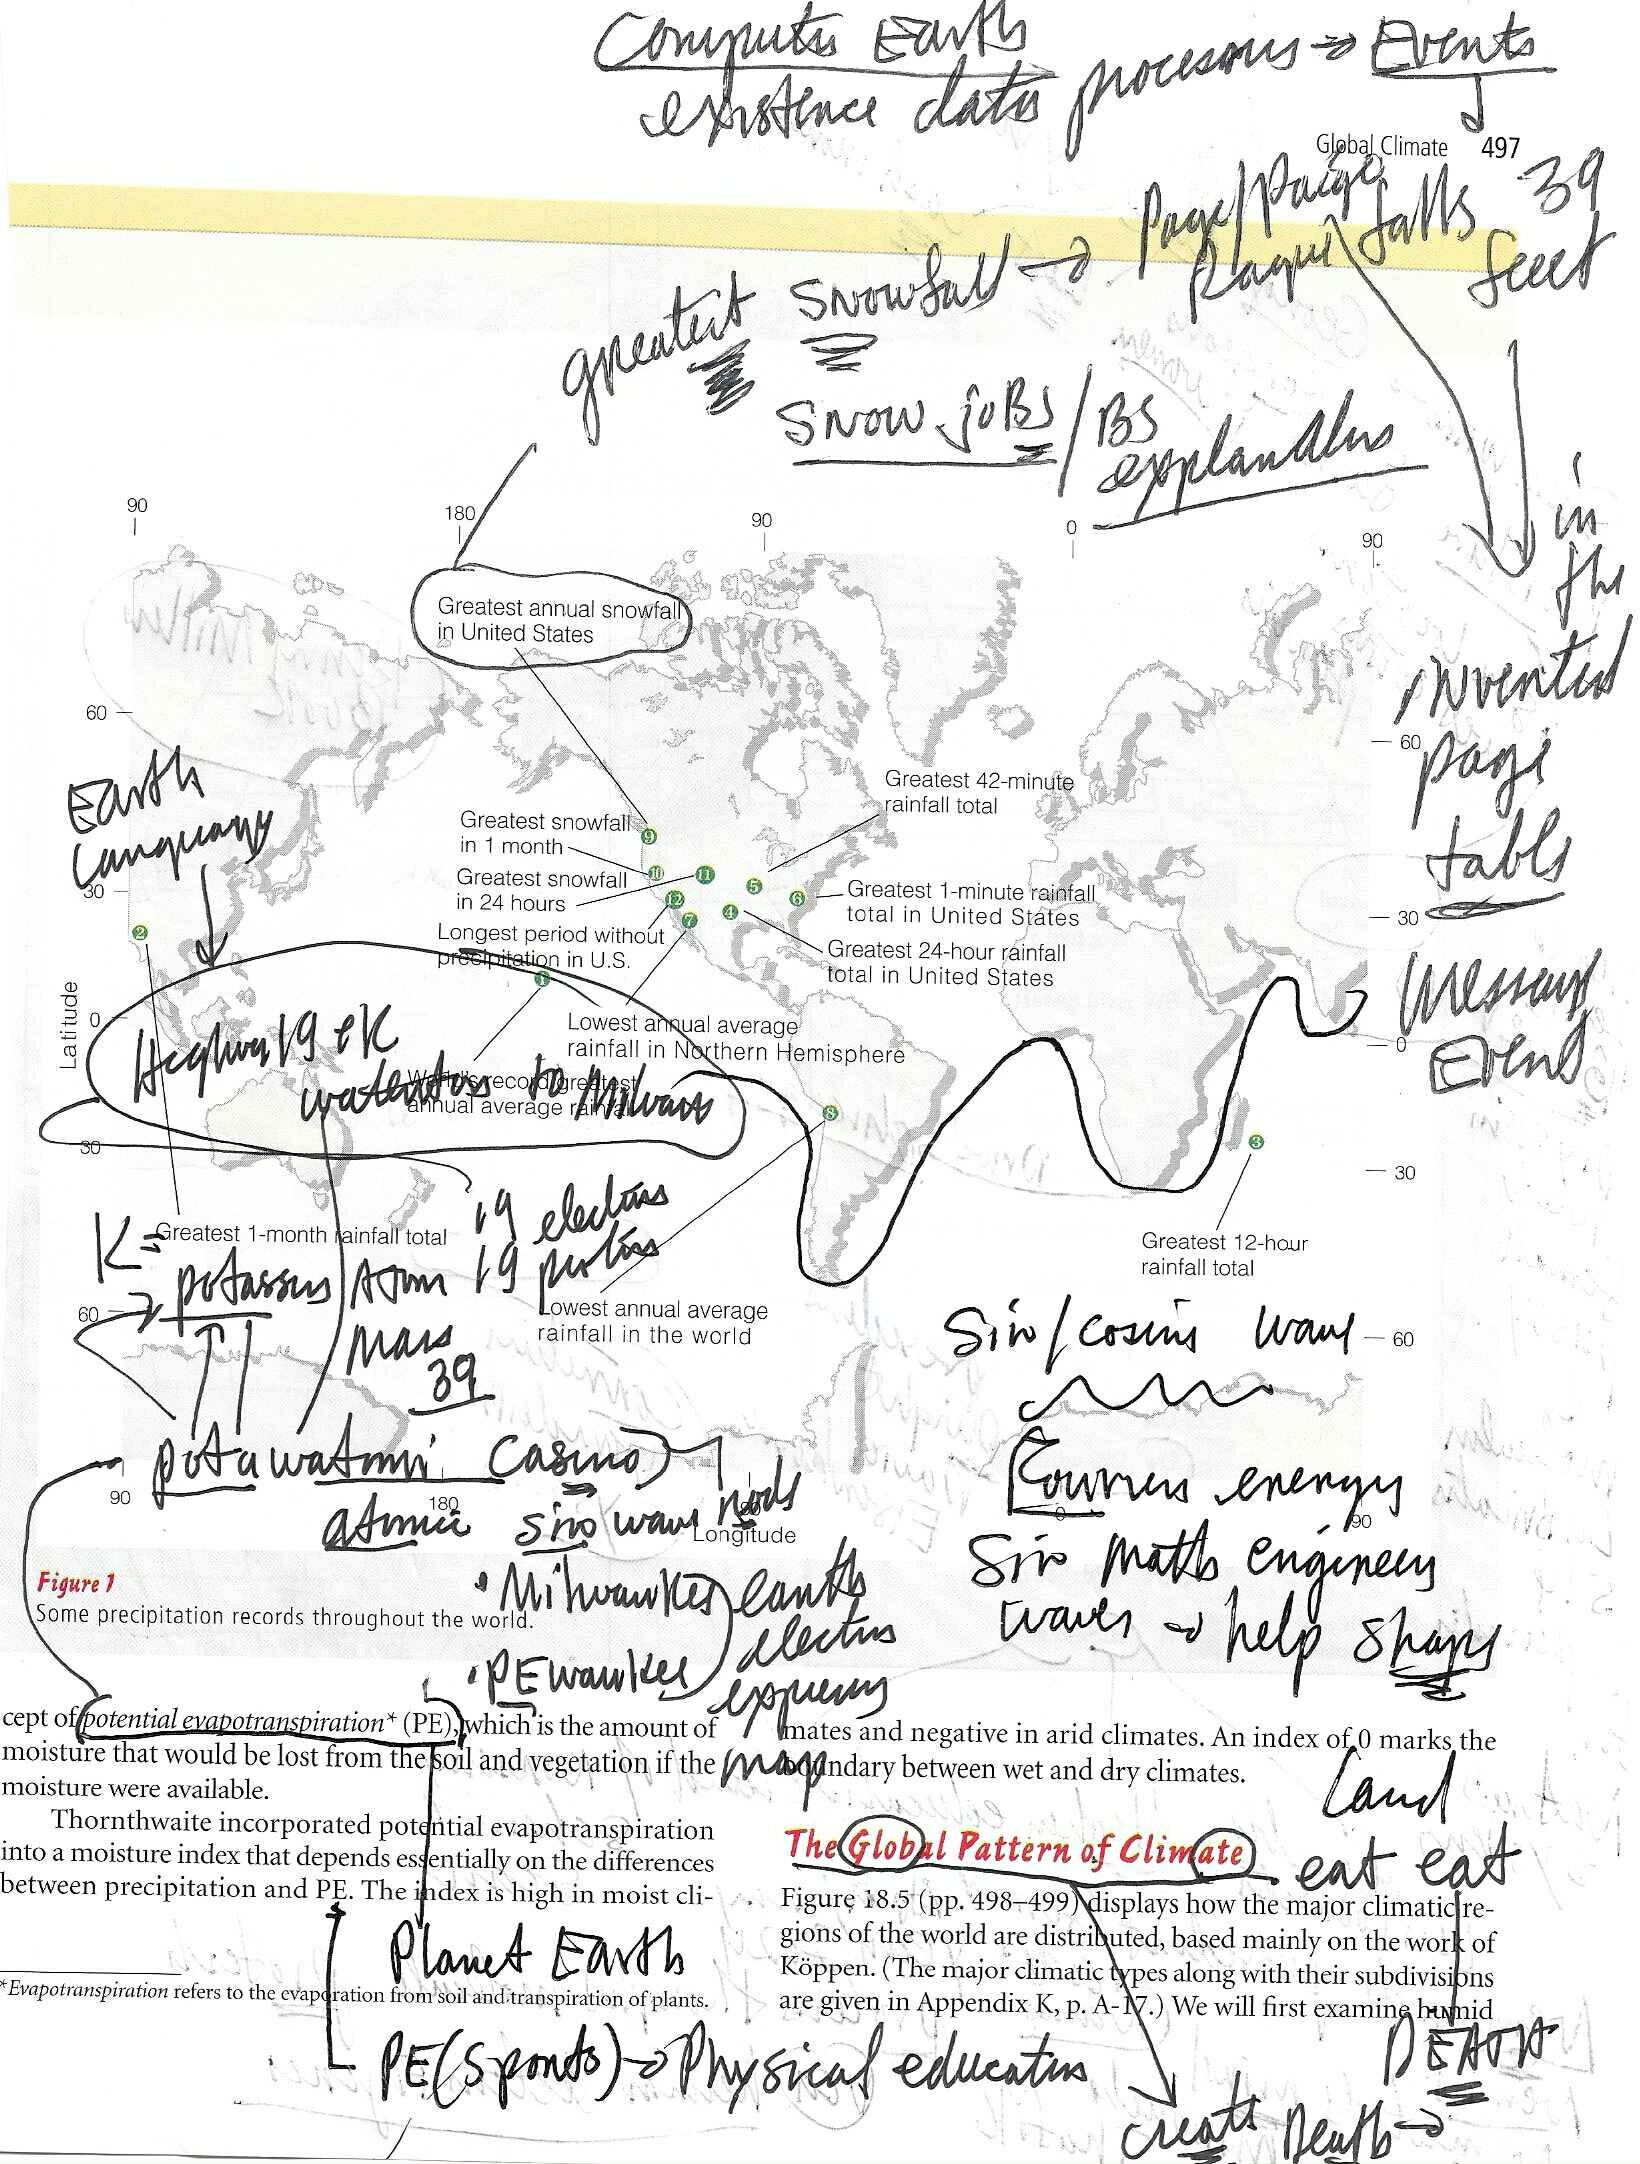 Computer Earth
existence data processors → Events
Global Climate 497
Page/Paige falls 39
Plaque feet
greatest snowfall →
Snow joBS / BS
in
the
invented
page
table
message
Event
90 180 90 0 90
Greatest annual snowfall
in United States
60
60
Earth
Language
Greatest 42-minute
rainfall total
Greatest snowfall
in 1 month
Greatest snowfall
in 24 hours
Longest period without
precipitation in U.S.
Greatest 1-minute rainfall
total in United States
Greatest 24-hour rainfall
total in United States
30
30
9
10
11
5
6
12
7
4
2
1
8
3
Latitude
0
0
Lowest annual average
rainfall in Northern Hemisphere
World's record greatest
annual average rainfall
Highway 19 
to
30
30
Greatest 1-month rainfall total
K =
19
Atom 19
Mass
39
Greatest 12-hour
rainfall total
Lowest annual average
rainfall in the world
60
60
Sin/cosine wave
potawatomi casino
atomic sin wave
90 180 0 90
Longitude
energy
Sin math engineers
waves → help shape
Figure 1
Some precipitation records throughout the world.
• Milwaukee earth
• PEwaukee
map
cept of potential evapotranspiration* (PE), which is the amount of
moisture that would be lost from the soil and vegetation if the
moisture were available.
Thornthwaite incorporated potential evapotranspiration
into a moisture index that depends essentially on the differences
between precipitation and PE. The index is high in moist cli-
Planet Earth
*Evapotranspiration refers to the evaporation from soil and transpiration of plants.
PE (Sports) → Physical education
mates and negative in arid climates. An index of 0 marks the
boundary between wet and dry climates.
Land
eat eat
The Global Pattern of Climate
Figure 18.5 (pp. 498–499) displays how the major climatic re-
gions of the world are distributed, based mainly on the work of
Köppen. (The major climatic types along with their subdivisions
are given in Appendix K, p. A-17.) We will first examine humid
DEATH
create Death →